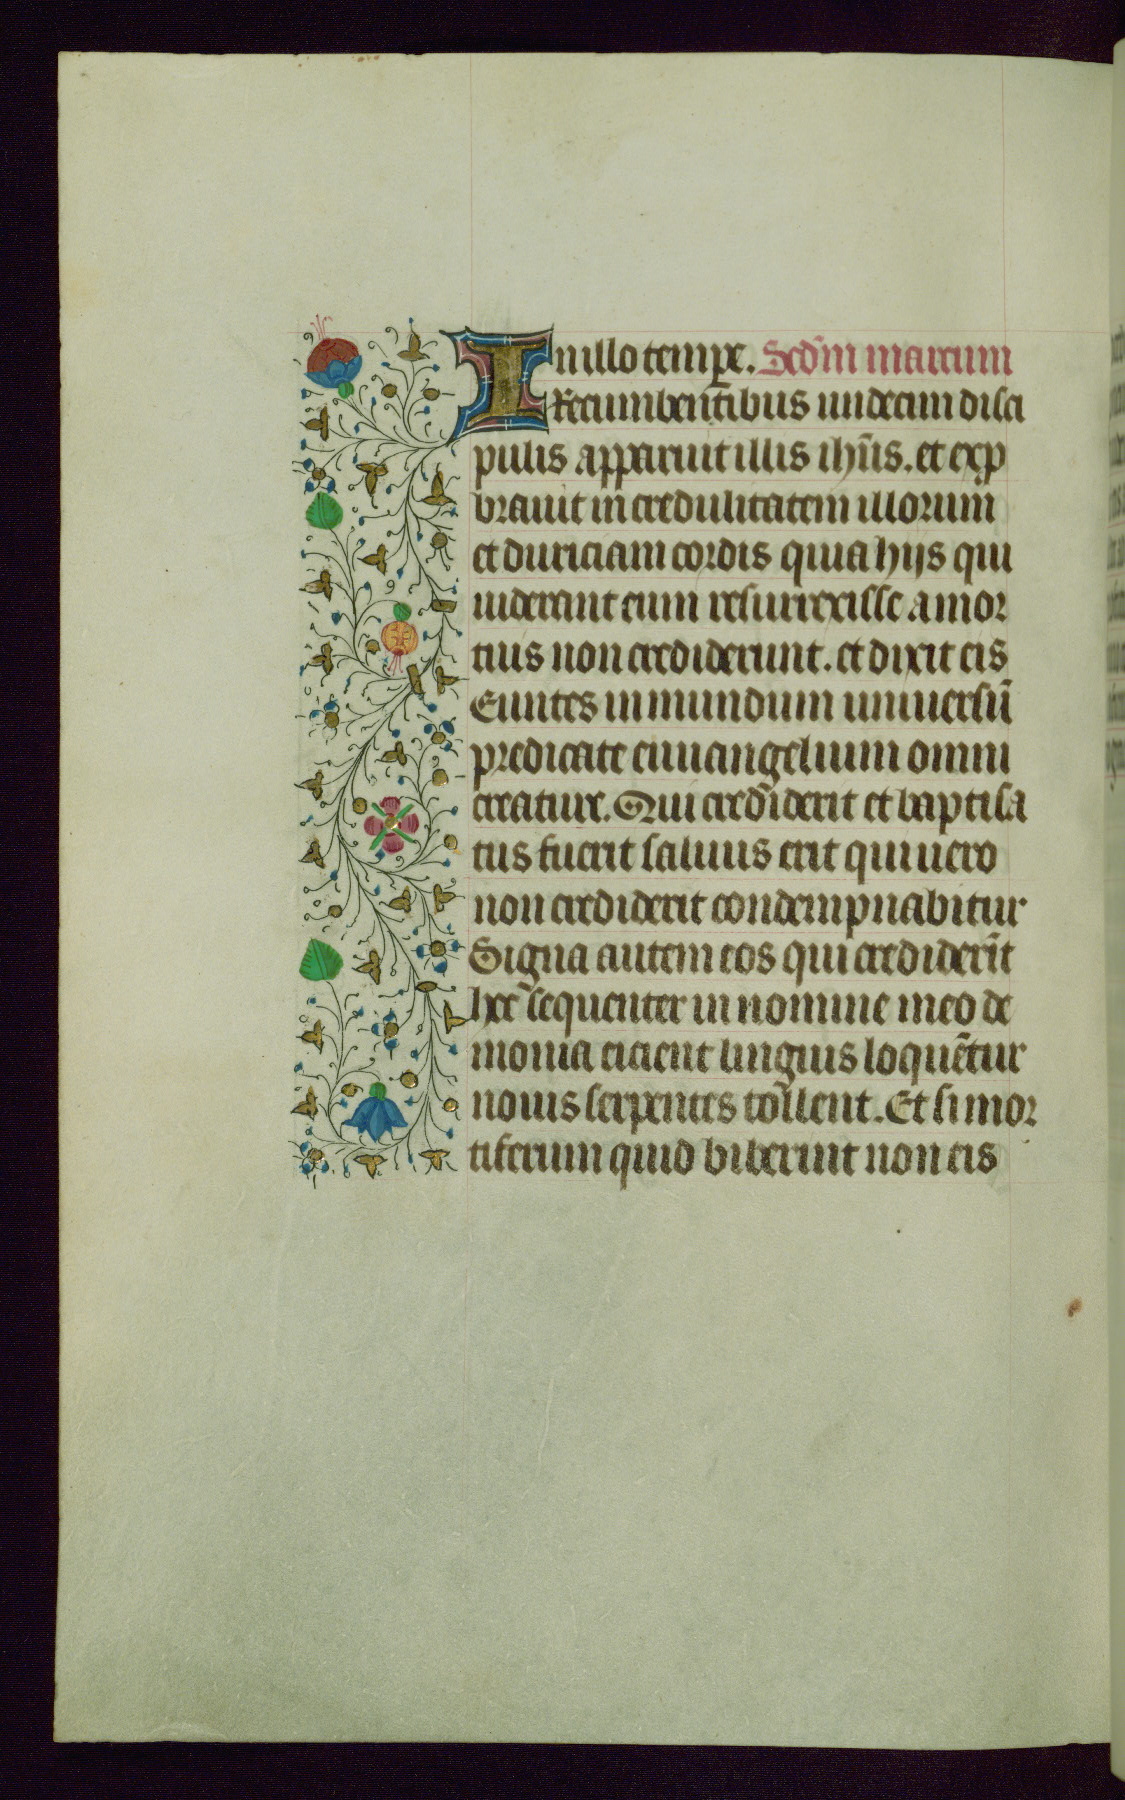 In illo tempꝛe. Scd̄m marcum
Recumbentibus undecim disci
pulis apparuit illis ihūs. et exp
bꝛauit incredulitatem illoꝛum
et duriciam coꝛdis quia hijs qui
uiderant eum resurrexisse a moꝛ
tuis non crediderunt. et dixit eis
Euntes in mundum uniuersū
pꝛedicate euuangelium omni
creature. Qui crediderit et baptisa
tus fuerit saluus erit qui uero
non crediderit condempnabitur
Signa autem eos qui crediderīt
hec sequenter in nomine meo de
monia eicient linguis loquētur
nouis serpentes tollent. Et si moꝛ
tiferum quid biberint non eis